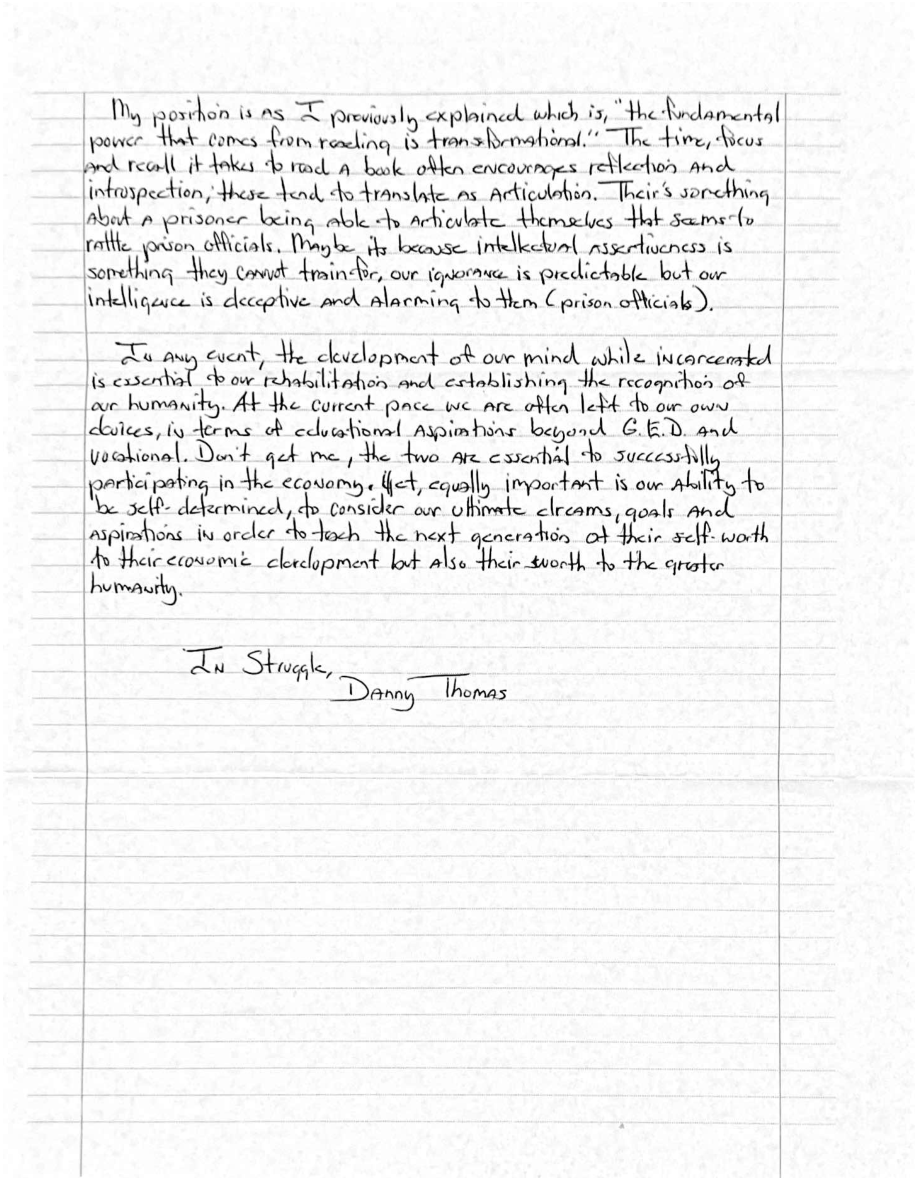 My position is as I previously explained which is, "the fundamental
power that comes from reading is transformational." The time, focus
and recall it takes to read a book often encourages reflection and
introspection, these tend to translate as articulation. Their's something
about a prisoner being able to articulate themselves that seems to
rattle prison officials. Maybe its because intellectual assertiveness is
something they cannot train for, our ignorance is predictable but our
intelligence is deceptive and alarming to them (prison officials).
In any event, the development of our mind while incarcerated
is essential to our rehabilitation and establishing the recognition of
our humanity. At the current pace we are often left to our own
devices, in terms of educational aspirations beyond G.E.D. and
vocational. Don't get me, the two are essential to successfully
participating in the economy. Yet, equally important is our ability to
be self-determined, to consider our ultimate dreams, goals and
aspirations in order to teach the next generation of their self-worth
to their economic development but also their worth to the greater
humanity.
In Struggle,
Danny Thomas